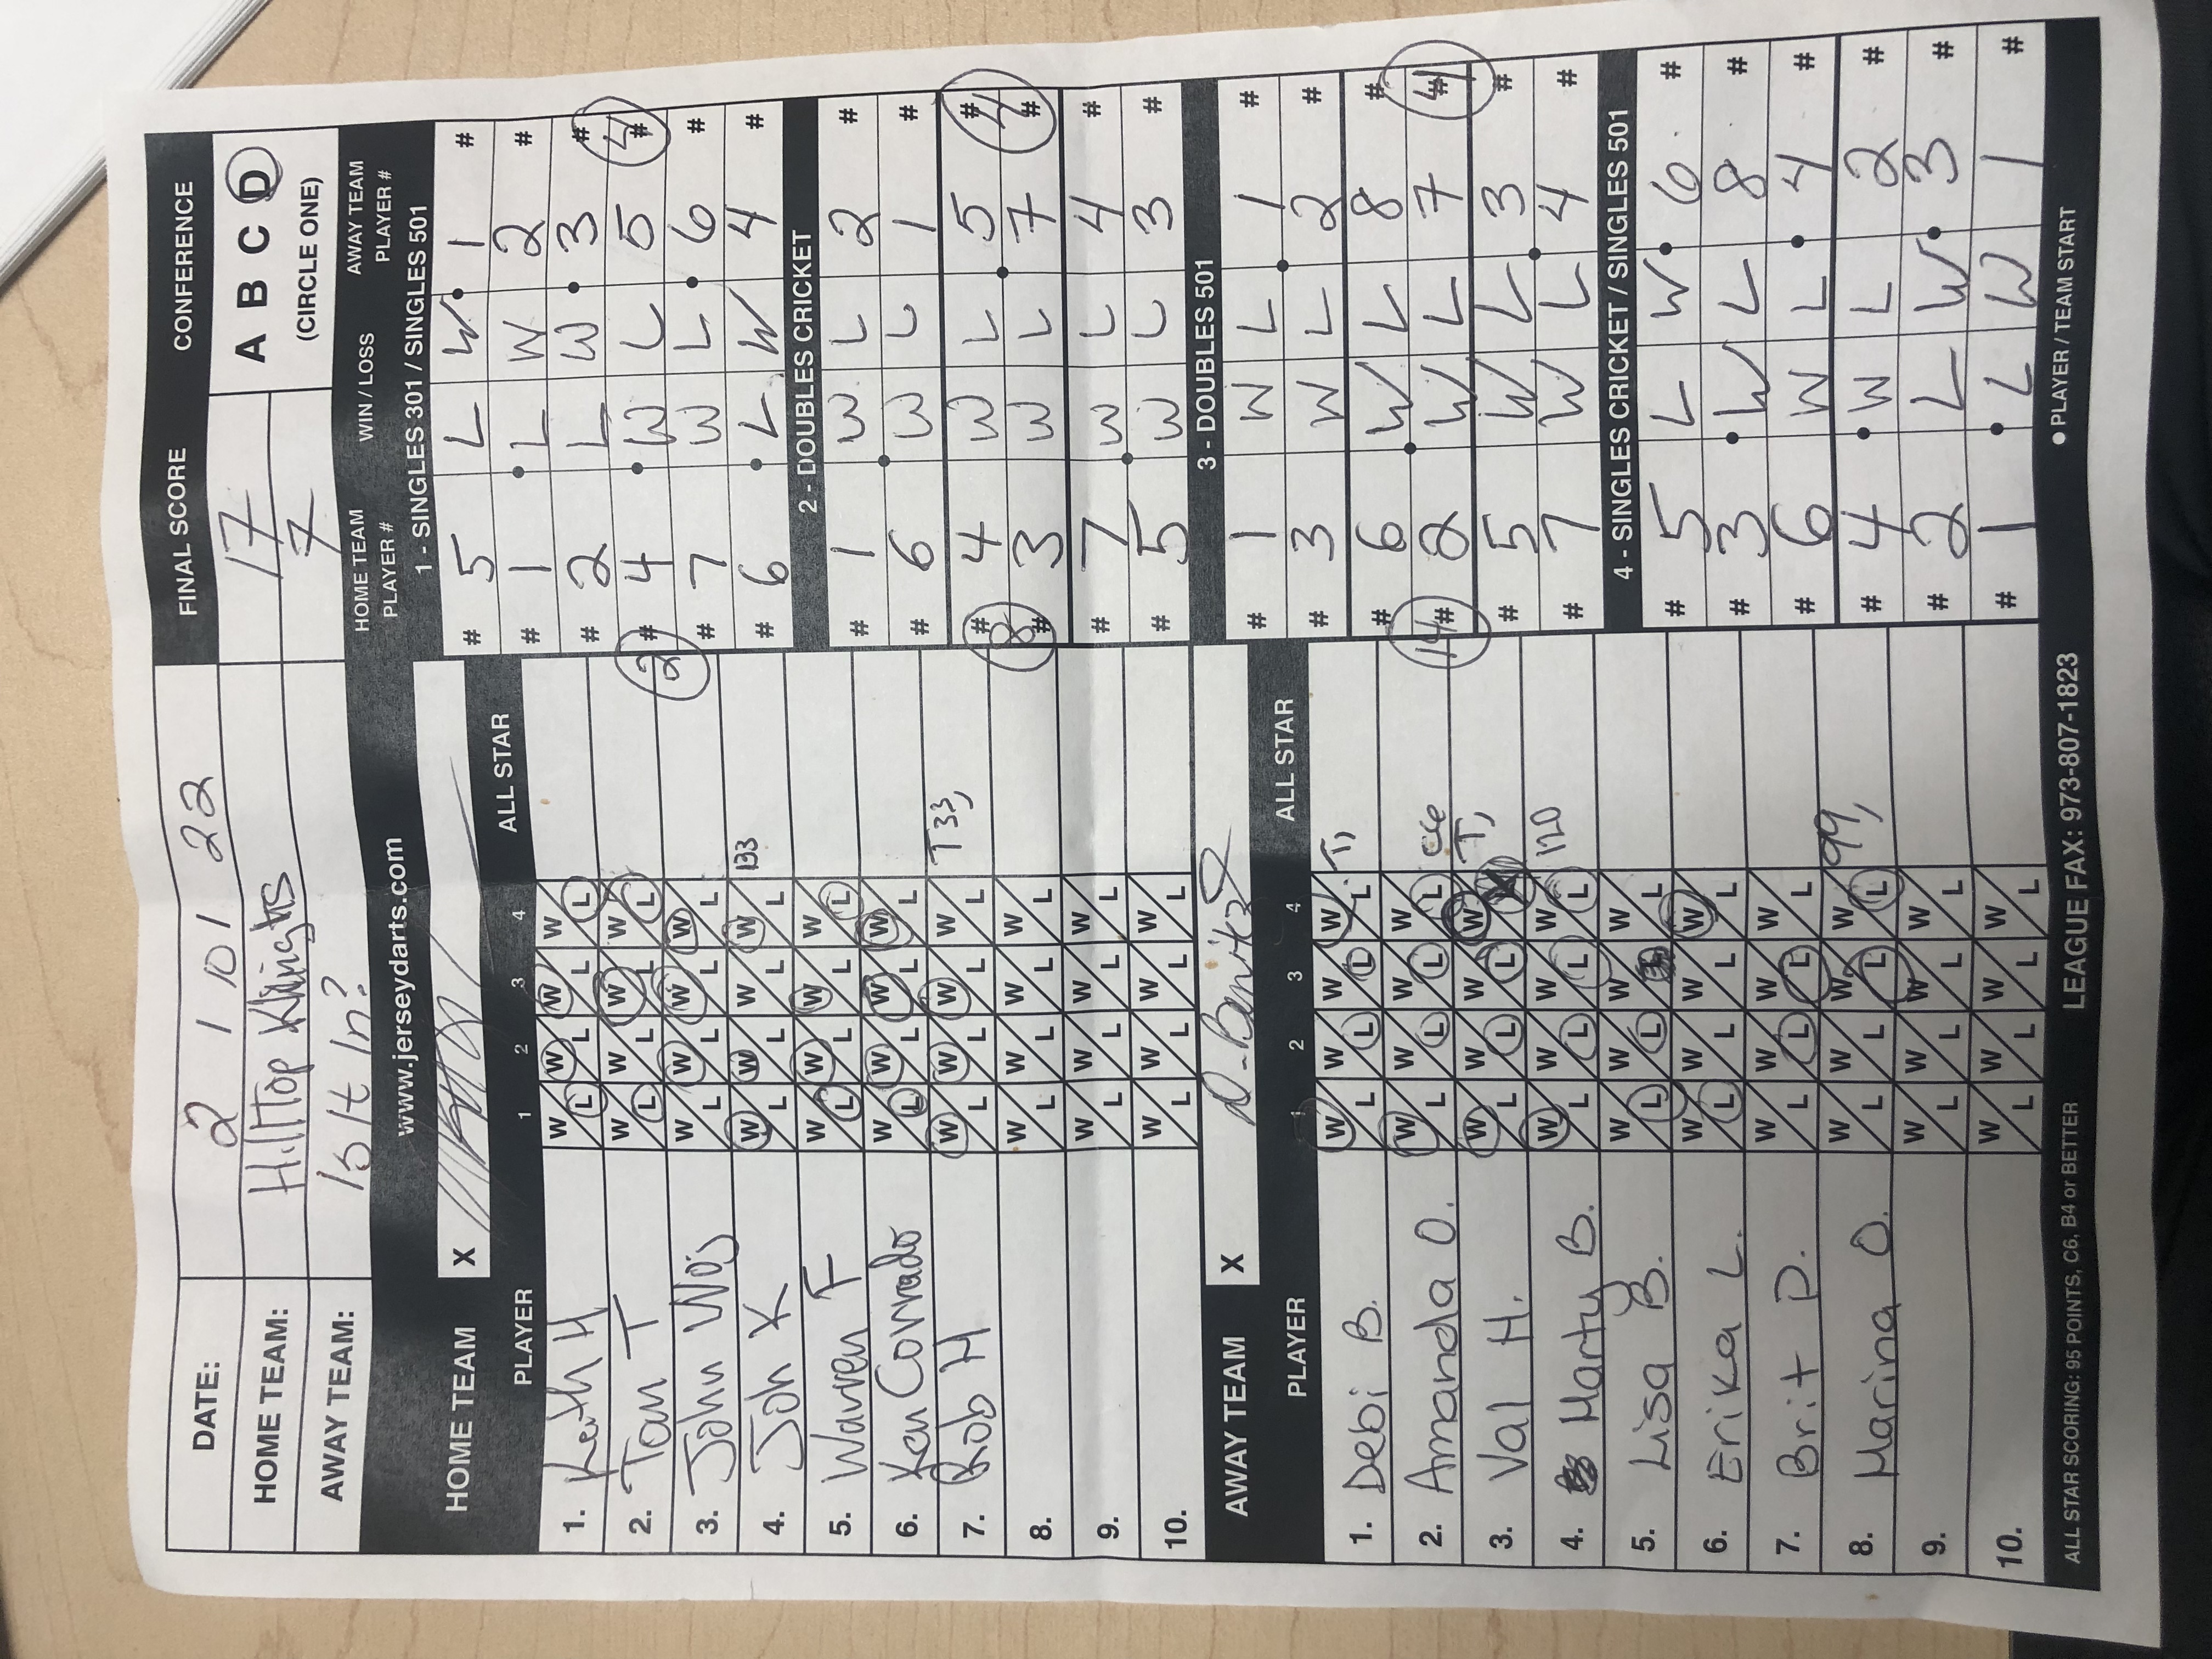 DATE: 2 / 10 / 22 FINAL SCORE CONFERENCE
HOME TEAM: HillTop Knights 17 A B C D
AWAY TEAM: Is It In? 7 (CIRCLE ONE)
www.jerseydarts.com
HOME TEAM PLAYER # WIN / LOSS AWAY TEAM PLAYER #
HOME TEAM X
PLAYER 1 2 3 4 ALL STAR
1. Keith H W L W L W L W L
2. Tom T W L W L W L W L
3. John Woj W L W L W L W L
4. Joh K W L W L W L W L 133
5. Warren F W L W L W L W L
6. Ken Corrado W L W L W L W L
7. Rob H W L W L W L W L T33,
8. W L W L W L W L
9. W L W L W L W L
10. W L W L W L W L
AWAY TEAM X
PLAYER 1 2 3 4 ALL STAR
1. Debi B. W L W L W L W L T,
2. Amanda O. W L W L W L W L C6
3. Val H. W L W L W L W L T,
4. Marty B. W L W L W L W L 120
5. Lisa B. W L W L W L W L
6. Erika L. W L W L W L W L
7. Brit P. W L W L W L W L
8. Marina O. W L W L W L W L 99,
9. W L W L W L W L
10. W L W L W L W L
1 - SINGLES 301 / SINGLES 501
# 5 L W 1 #
# 1 L W 2 #
# 2 L W 3 #
2 # 4 W L 5 # 4
# 7 W L 6 #
# 6 L W 4 #
2 - DOUBLES CRICKET
# 1 W L 2 #
# 6 W L 1 #
# 4 W L 5 #
8 # 3 W L 7 # 4
# 7 W L 4 #
# 5 W L 3 #
3 - DOUBLES 501
# 1 W L 1 #
# 3 W L 2 #
# 6 W L 8 #
14 # 2 W L 7 # 4
# 5 W L 3 #
# 7 W L 4 #
4 - SINGLES CRICKET / SINGLES 501
# 5 L W 6 #
# 3 W L 8 #
# 6 W L 4 #
# 4 W L 2 #
# 2 L W 3 #
# 1 L W 1 #
ALL STAR SCORING: 95 POINTS, C6, B4 or BETTER LEAGUE FAX: 973-807-1823 ● PLAYER / TEAM START